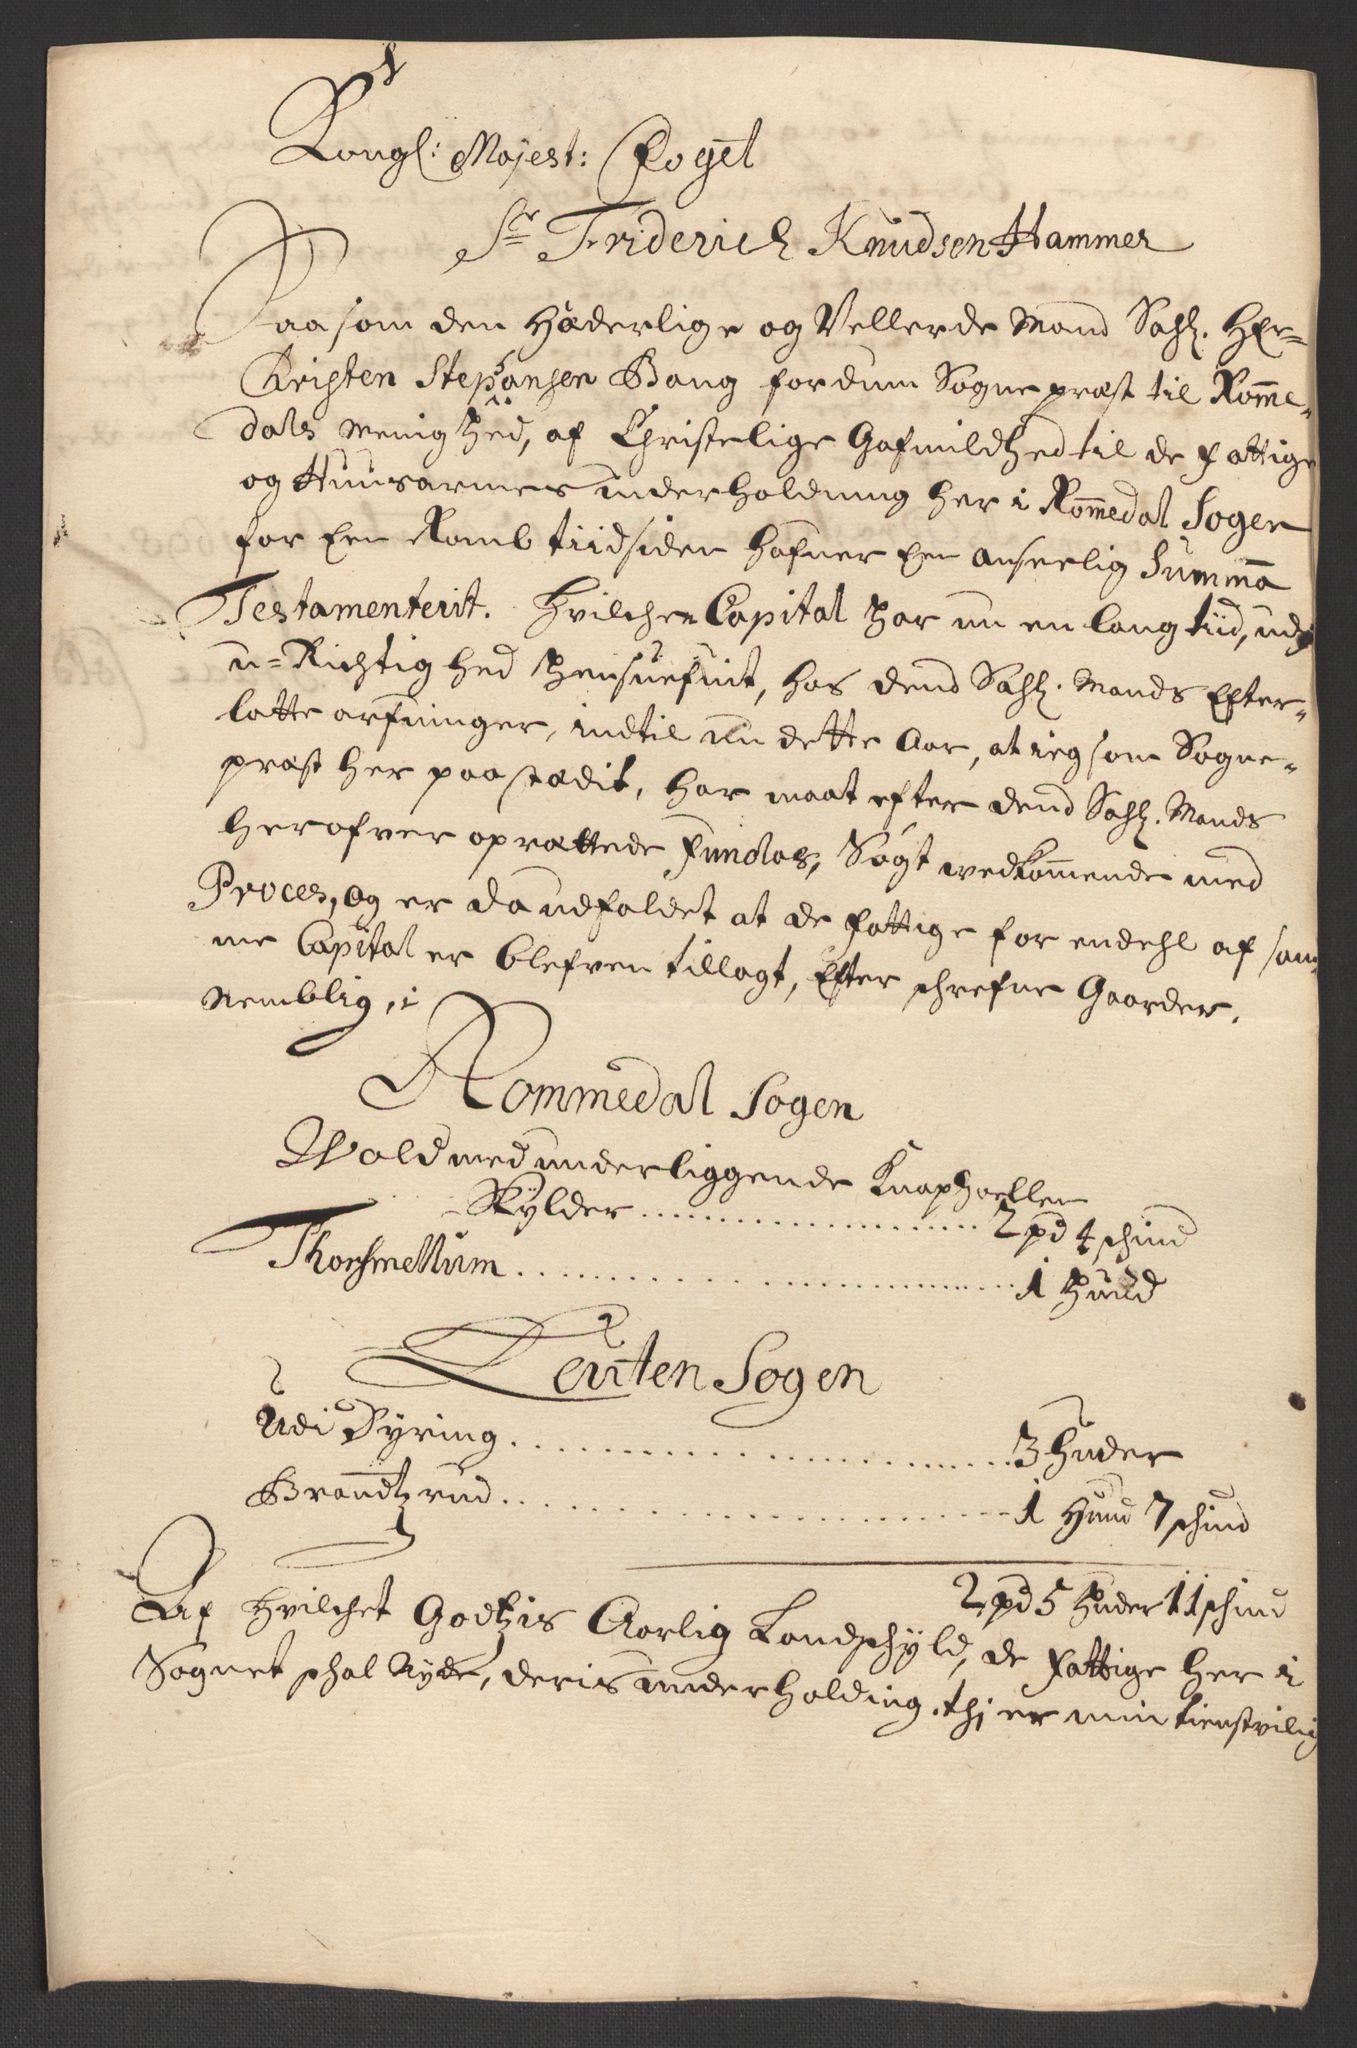 Kongl: Mayest: Foget
Sr Friderich Knudsen Hammer
Saasom den Hæderlige og Vellerde Mand Sahl. Her=
Kristen Stephansen Bang fordum Sogne præst til Romme=
dals menighed, af Christelige Gafmildhed til de Fattige
og Huusarmes underholdning her i Rommedal Sogen
for Een Romb tiid siden hafuer Een anseelig Summa
Testamenterit. Hvilchen Capital har nu en lang tiid, udj
u=Richtighed hensuefuit, hos dend Sahl. Mands Efter=
latte arfuinger, indtil nu dette Aar, at ieg som Sogne=
præst her paa stædit, har maat efter dend Sahl. Mands
herofver oprættede Fundas, Søgt vedkommende med
Proces, og er da udfaldet at de fattige for endehl af sam=
me Capital er blefven tillagt, Efter schrefne Gaarder,
Nemblig, i
Rommedal Sogen
Wold med underliggende Knaphoellen
Skylder ........ 2 pd 4 schind
Thorshmellum ........ 1 Huud
Leuten Sogen
Udi Dyring ........ 3 Huder
Brandtzrud ........ 1 Huud 7 schind
2 pd 5 Huder 11 schind
Af hvilchet Godtzis Aarlig Landschyld, de Fattige her i
Sognet schal Nyde, deris underholding, thi er min tienstvilig